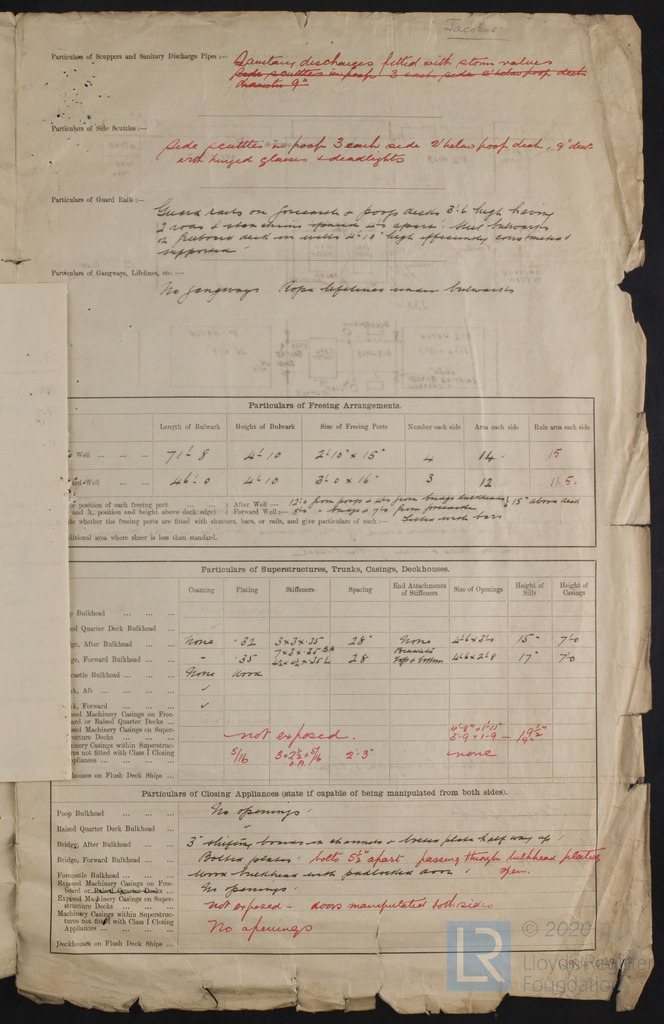 Jacobus
Particulars of Scuppers and Sanitary Discharge Pipes :— Sanitary discharges fitted with storm valves
Side scuttles in poop 3 each side 2' below poop deck
diameter 9"
Particulars of Side Scuttles :—
Side scuttles in poop 3 each side 2' below poop deck, 9" diar
with hinged glasses & deadlights
Particulars of Guard Rails :—
Guard rails on forecastle & poop decks 3'-6 high having
2 rows & stanchions spaced apart. Steel bulwarks
on freeboard deck in wells 4'-10" high efficiently constructed &
supported
Particulars of Gangways, Lifelines, etc. :—
No gangways Rope lifelines under bulwarks
Particulars of Freeing Arrangements.
Length of Bulwark Height of Bulwark Size of Freeing Ports Number each side Area each side Rule area each side
Well ... ... ... 71'-8 4'-10 2'-10" x 15" 4 14 15
Well ... ... 46'-0 4'-10 3'-0 x 16" 3 12
position of each freeing port ... ... ) After Well :— from poop & from bridge bulkhead 15" above deck
and position and height above deck edge) ) Forward Well :— bridge & 7'-0 from forecastle
te whether the freeing ports are fitted with shutters, bars, or rails, and give particulars of such :— Fitted with bars
ditional area where sheer is less than standard.
Particulars of Superstructures, Trunks, Casings, Deckhouses.
Coaming Plating Stiffeners Spacing End Attachments of Stiffeners Size of Openings Height of Sills Height of Casings
p Bulkhead ... ... ...
ed Quarter Deck Bulkhead ...
ge, After Bulkhead ... ... None .32 3 x 3 x .35 28" None 4'-6 x 3'-0 15" 7'-0
ge, Forward Bulkhead ... ... - .35 7 x 3 x .35 BA 28 Brackets top & bottom 4'6 x 2'8 17" 7'-0
castle Bulkhead ... ... None Wood
k, Aft ... ... ... ✓
k, Forward ... ... ... ✓
sed Machinery Casings on Free-
ard or Raised Quarter Decks ...
sed Machinery Casings on Super-
ucture Decks ... ... ... not exposed.
inery Casings within Superstruc-
res not fitted with Class I Closing
ppliances ... ... ... 5/16 2'-3" none
houses on Flush Deck Ships ...
Particulars of Closing Appliances (state if capable of being manipulated from both sides).
Poop Bulkhead ... ... ... No openings
Raised Quarter Deck Bulkhead ... -
Bridge, After Bulkhead ... ... 3" shifting boards in channels & bolted plate half way up
Bridge, Forward Bulkhead ... ... Bolted plates bolts 5½" apart passing through bulkhead plating
Forecastle Bulkhead ... ... Wood bulkhead with padlocked door open.
Exposed Machinery Casings on Free-
board or Raised Quarter Decks ... No openings
Exposed Machinery Casings on Super-
structure Decks ... ... ... not exposed - doors manipulated both sides
Machinery Casings within Superstruc-
tures not fitted with Class I Closing
Appliances ... ... ... No openings
Deckhouses on Flush Deck Ships ...
LR
© 2020
Lloyd's Register
Foundation